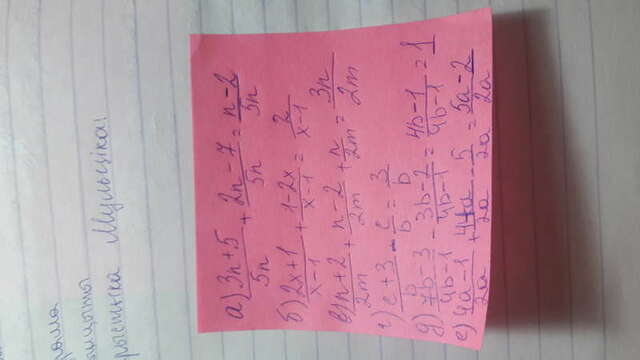 рама
рыстыка Мультсіка!
а) (3n+5)/5n + (2n-7)/5n = (n-2)/5n
б) (2x+1)/(x-1) + (1-2x)/(x-1) = 2/(x-1)
в) (n+2)/2m + (n-2)/2m + n/2m = 3n/2m
г) (c+3)/b - c/b = 3/b
д) (7b-3)/(4b-1) - (3b-2)/(4b-1) = (4b-1)/(4b-1) = 1
е) (4a-1)/2a + (4+a)/2a - 5/2a = (5a-2)/2a